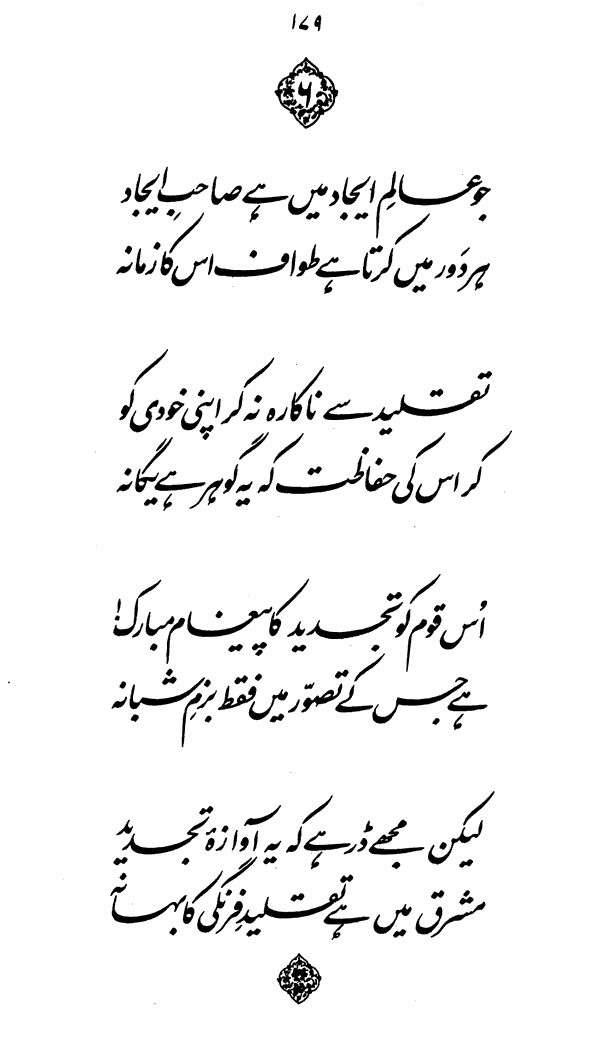 ۱۷۹
۶
جو عالمِ ایجاد میں ہے صاحبِ ایجاد
ہر دَور میں کرتا ہے طواف اس کا زمانہ
تقلید سے ناکارہ نہ کر اپنی خودی کو
کر اس کی حفاظت کہ یہ گوہر ہے یگانہ
اُس قوم کو تجدید کا پیغام مبارک!
ہے جس کے تصوّر میں فقط بزمِ شبانہ
لیکن مجھے ڈر ہے کہ یہ آوازۂ تجدید
مشرق میں ہے تقلیدِ فرنگی کا بہانہ